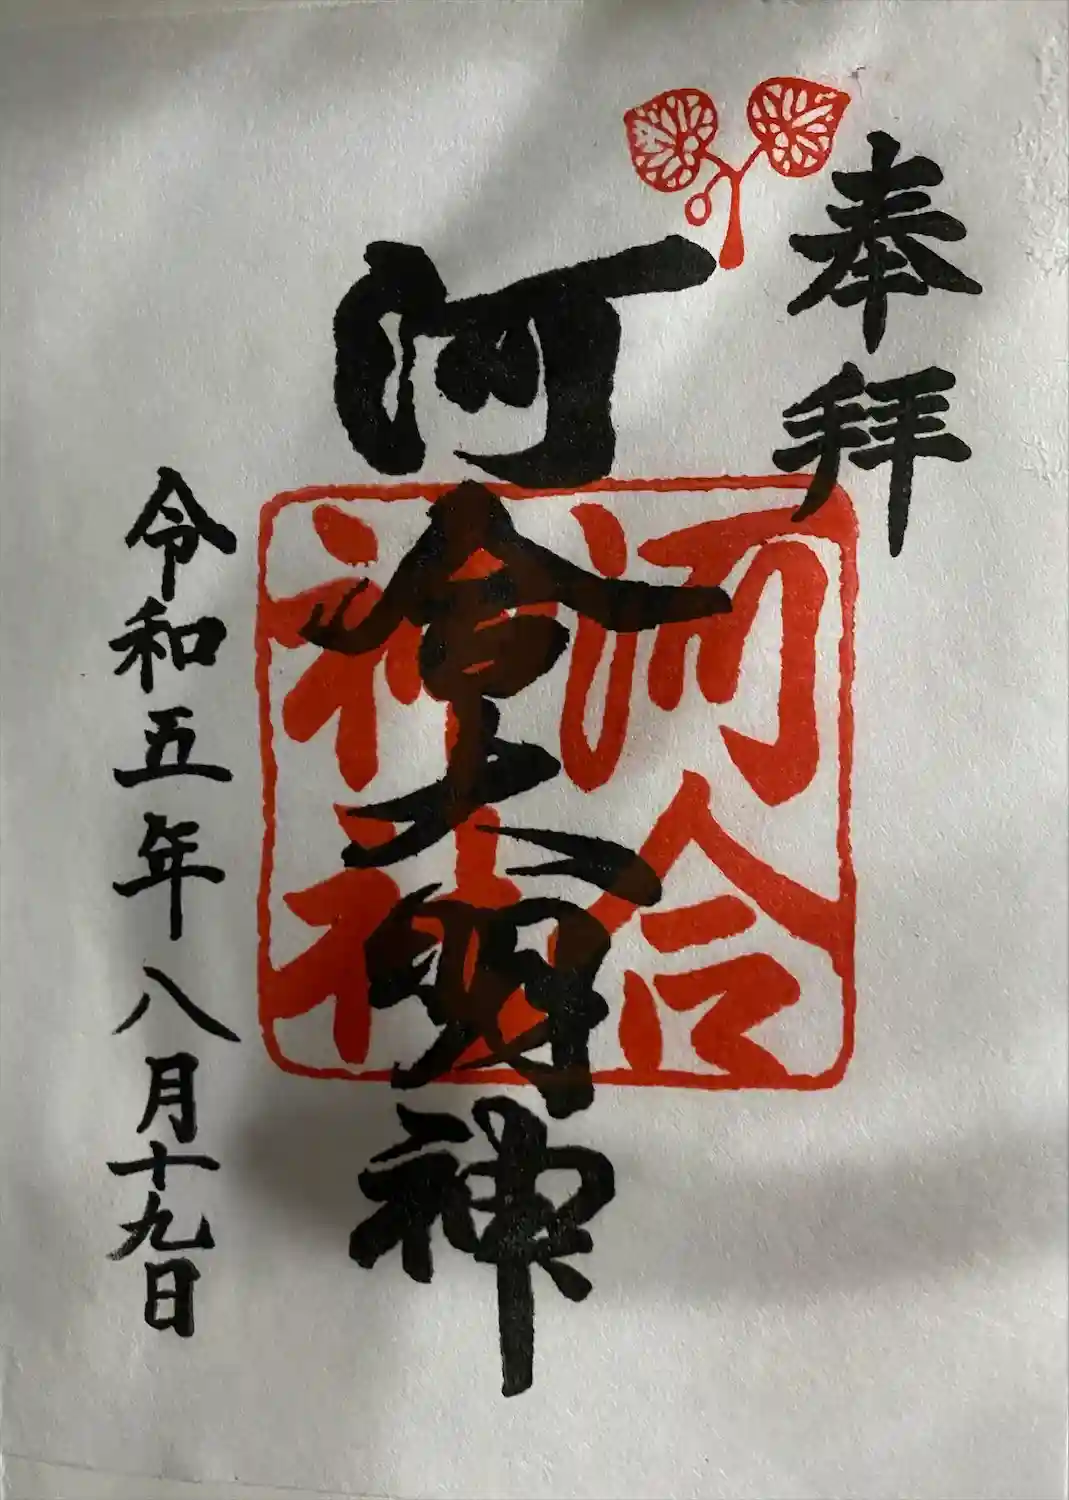 奉拝
河會大明神
河合
神社
令和五年八月十九日